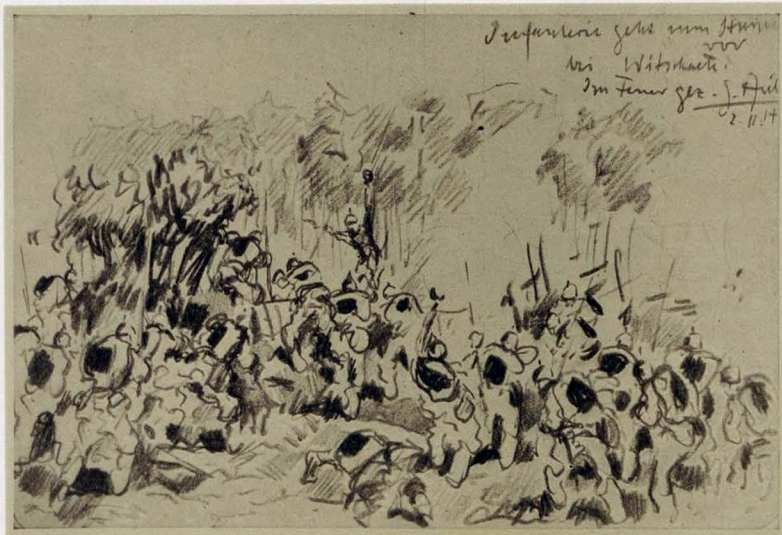 Infanterie geht zum Sturm
vor
bei Witschaete.
Im Feuer gez. G.
2.11.14